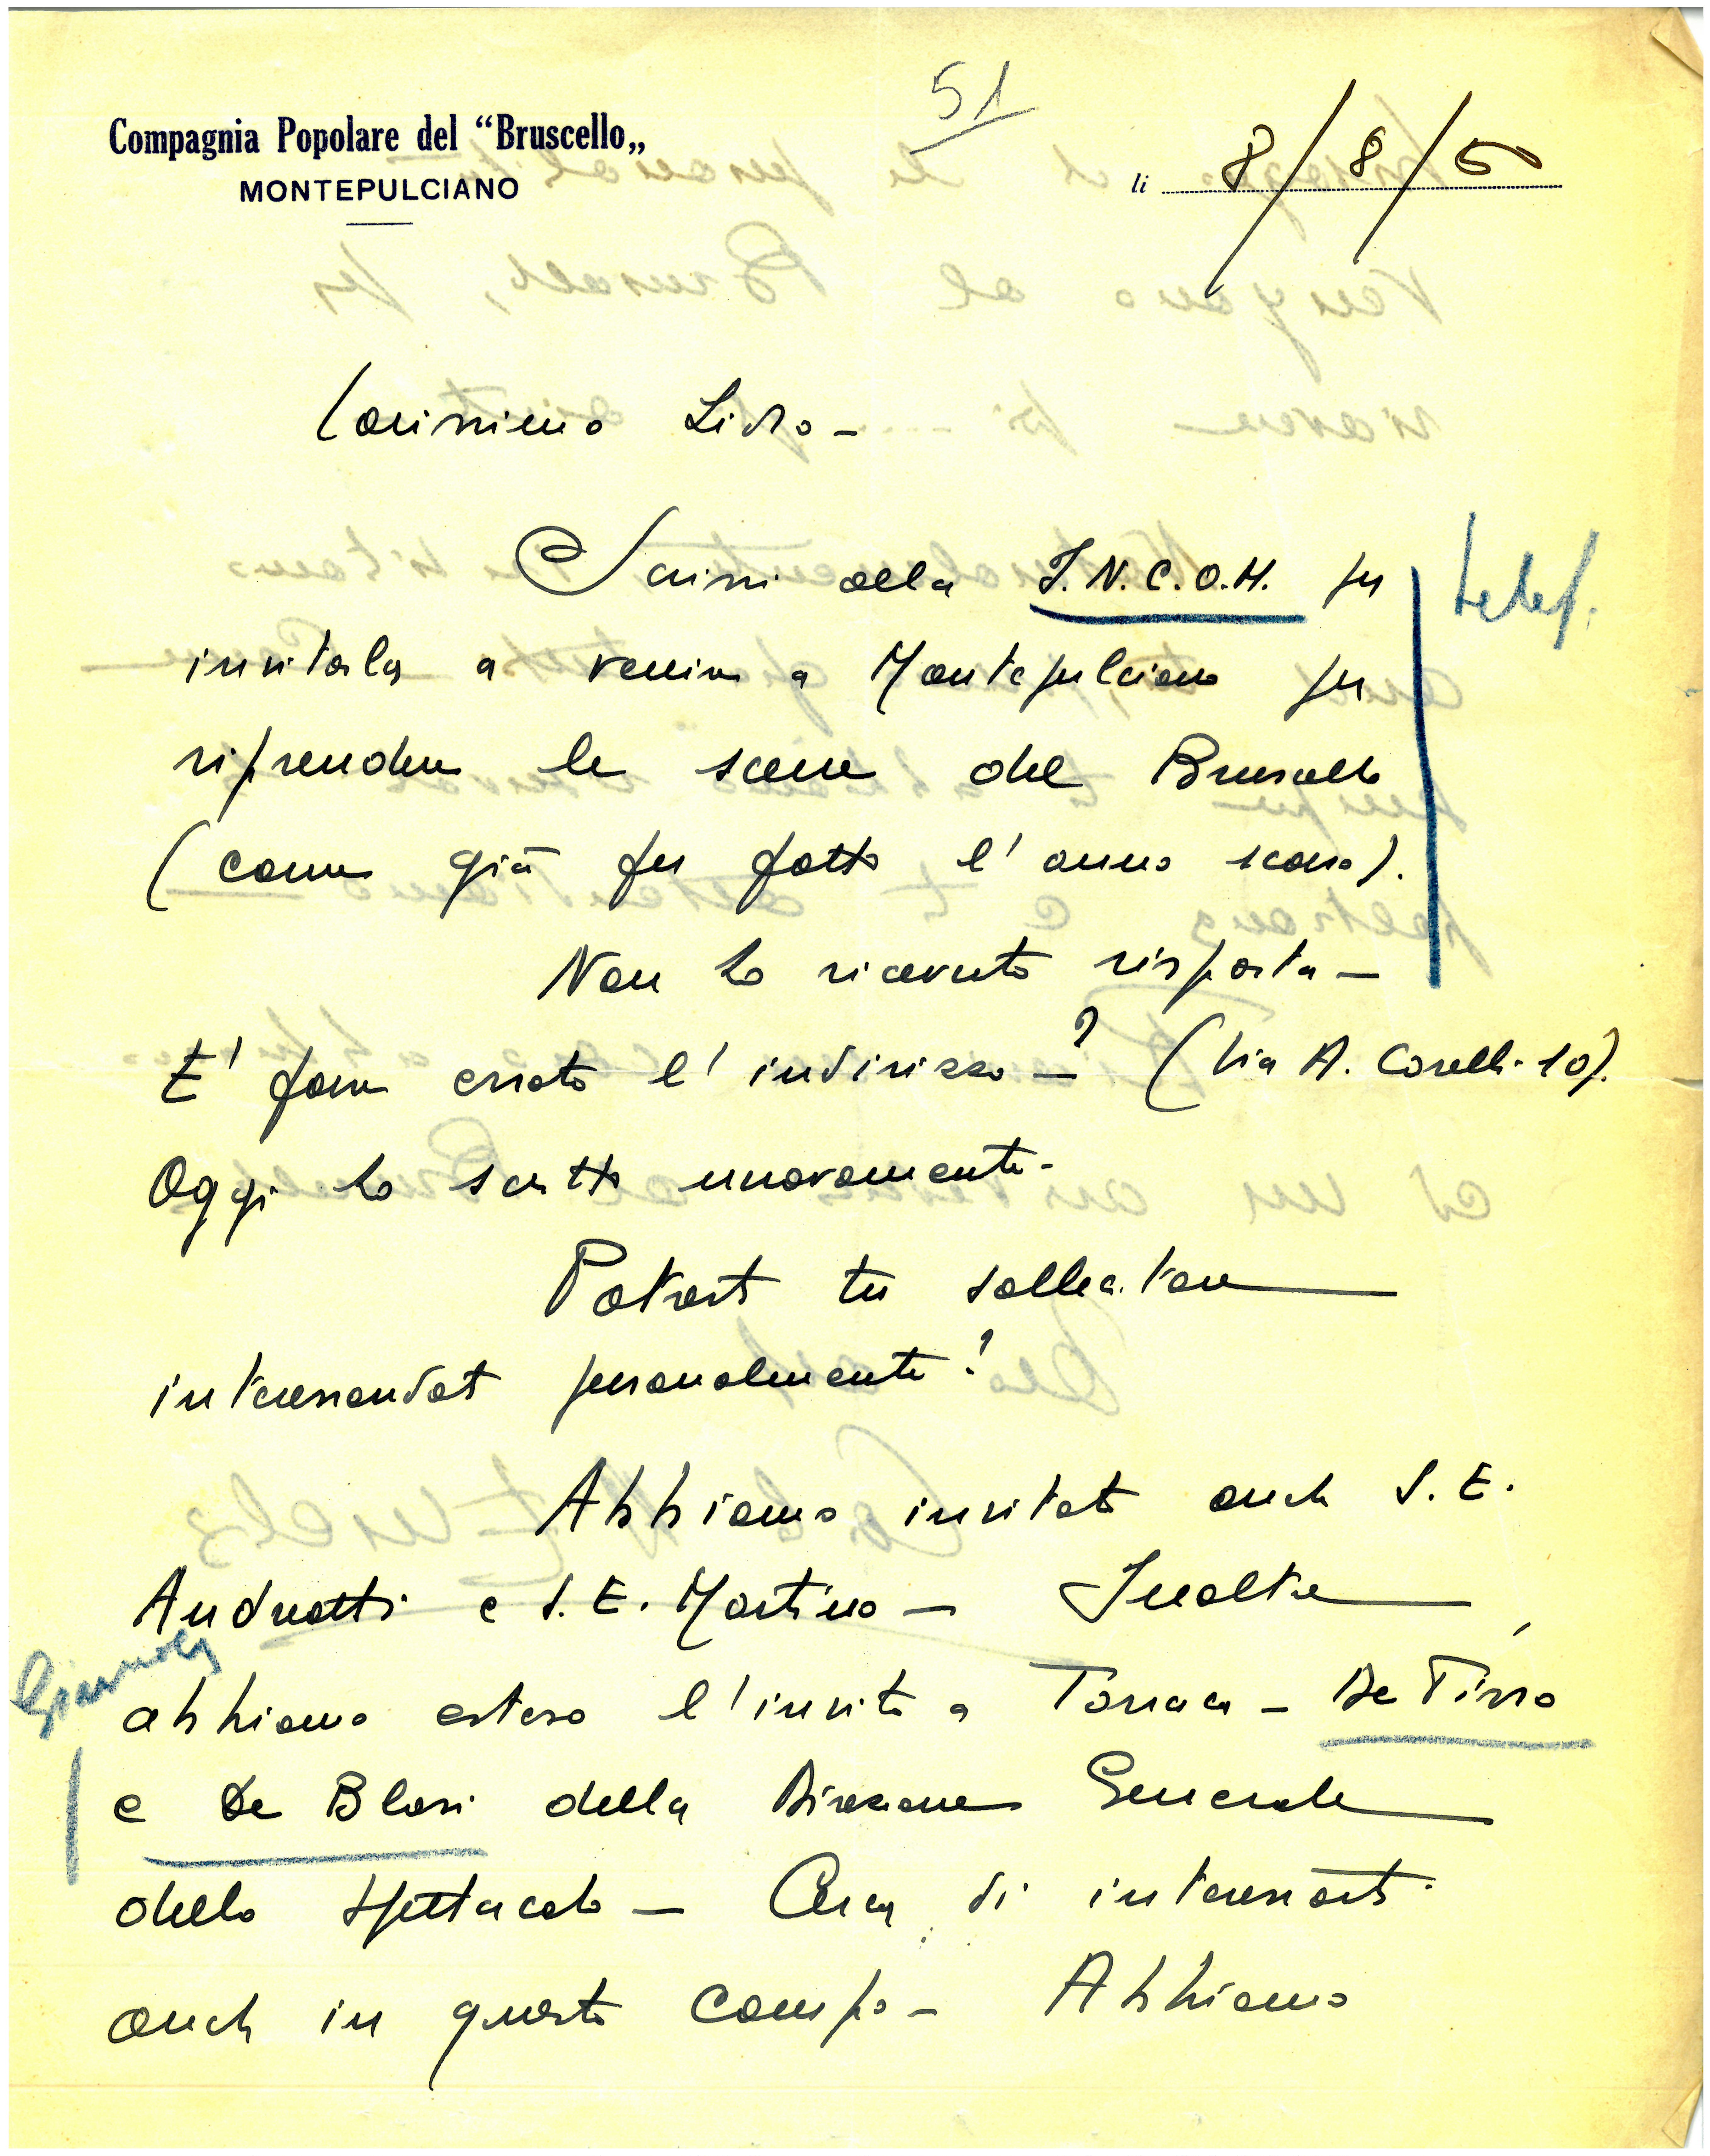 51
Compagnia Popolare del "Bruscello„
MONTEPULCIANO
li 8/8/50
Carissimo Lidio -
Scrissi alla I.N.C.O.M. per
telef.
invitarla a venire a Montepulciano per
riprendere le scene del Bruscello
(come già fu fatto l'anno scorso).
Non ho ricevuto risposta -
E' forse errato l'indirizzo - ? (Via A. Corelli - 10).
Oggi ho scritto nuovamente -
Potresti tu sollecitare
interessandoti personalmente?
Abbiamo invitato anche S. E.
Andreotti e S. E. Martino - Inoltre
abbiamo esteso l'invito a Torraca - De Pirro
e De Blasi della Direzione Generale
dello Spettacolo - Cerca di interessarti
anche in questo campo - Abbiamo